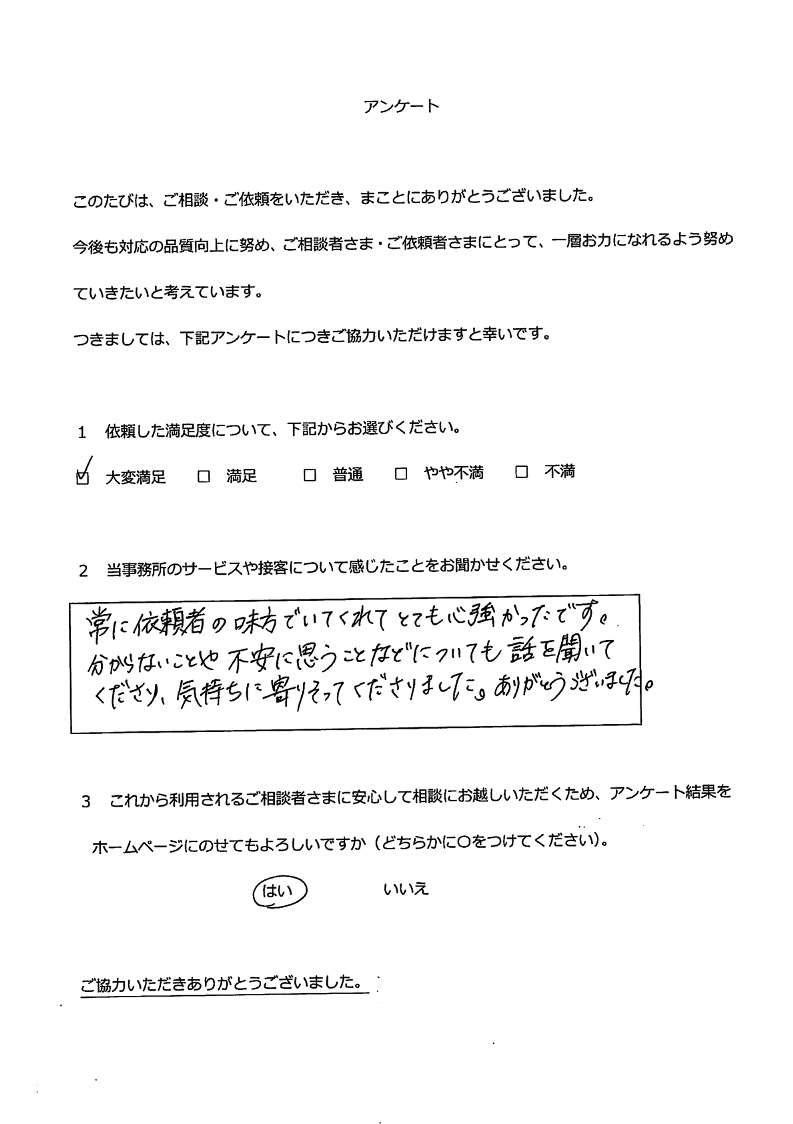 アンケート
このたびは、ご相談・ご依頼をいただき、まことにありがとうございました。
今後も対応の品質向上に努め、ご相談者さま・ご依頼者さまにとって、一層お力になれるよう努め
ていきたいと考えています。
つきましては、下記アンケートにつきご協力いただけますと幸いです。
1　依頼した満足度について、下記からお選びください。
☑ 大変満足　□ 満足　□ 普通　□ やや不満　□ 不満
2　当事務所のサービスや接客について感じたことをお聞かせください。
常に依頼者の味方でいてくれてとても心強かったです。
分からないことや不安に思うことなどについても話を聞いて
くださり、気持ちに寄りそってくださりました。ありがとうございました。
3　これから利用されるご相談者さまに安心して相談にお越しいただくため、アンケート結果を
ホームページにのせてもよろしいですか（どちらかに○をつけてください）。
はい　いいえ
ご協力いただきありがとうございました。